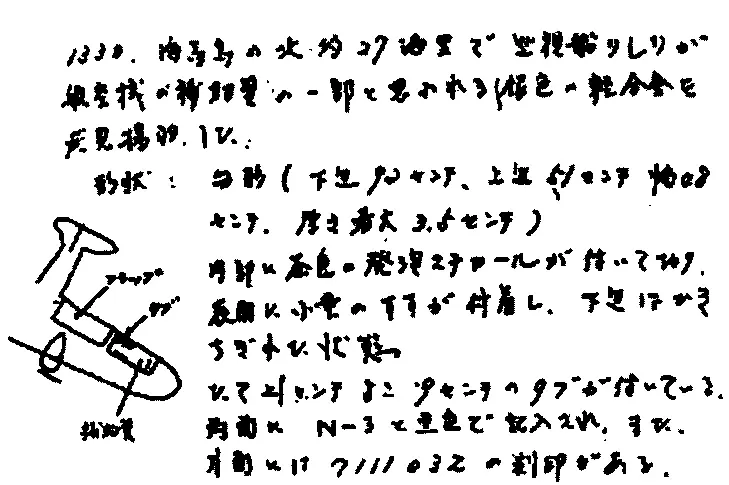 1330. 海馬島の北約27海里で巡視船りしりが
航空機の補助翼の一部と思われる(銀色の軽合金を
発見揚収した.
形状: 台形(下辺90センチ、上辺51センチ 幅28
センチ、厚さ最大3.5センチ)
内部に茶色の発泡スチロールが付いており.
表面に少量のすすが付着し、下辺はかき
ちぎれた状態。
たて21センチよこ19センチのタブが付いている.
両面に N-3と黒色で記入され、また、
片面には 7111032の刻印がある.
フラップ
タブ
補助翼